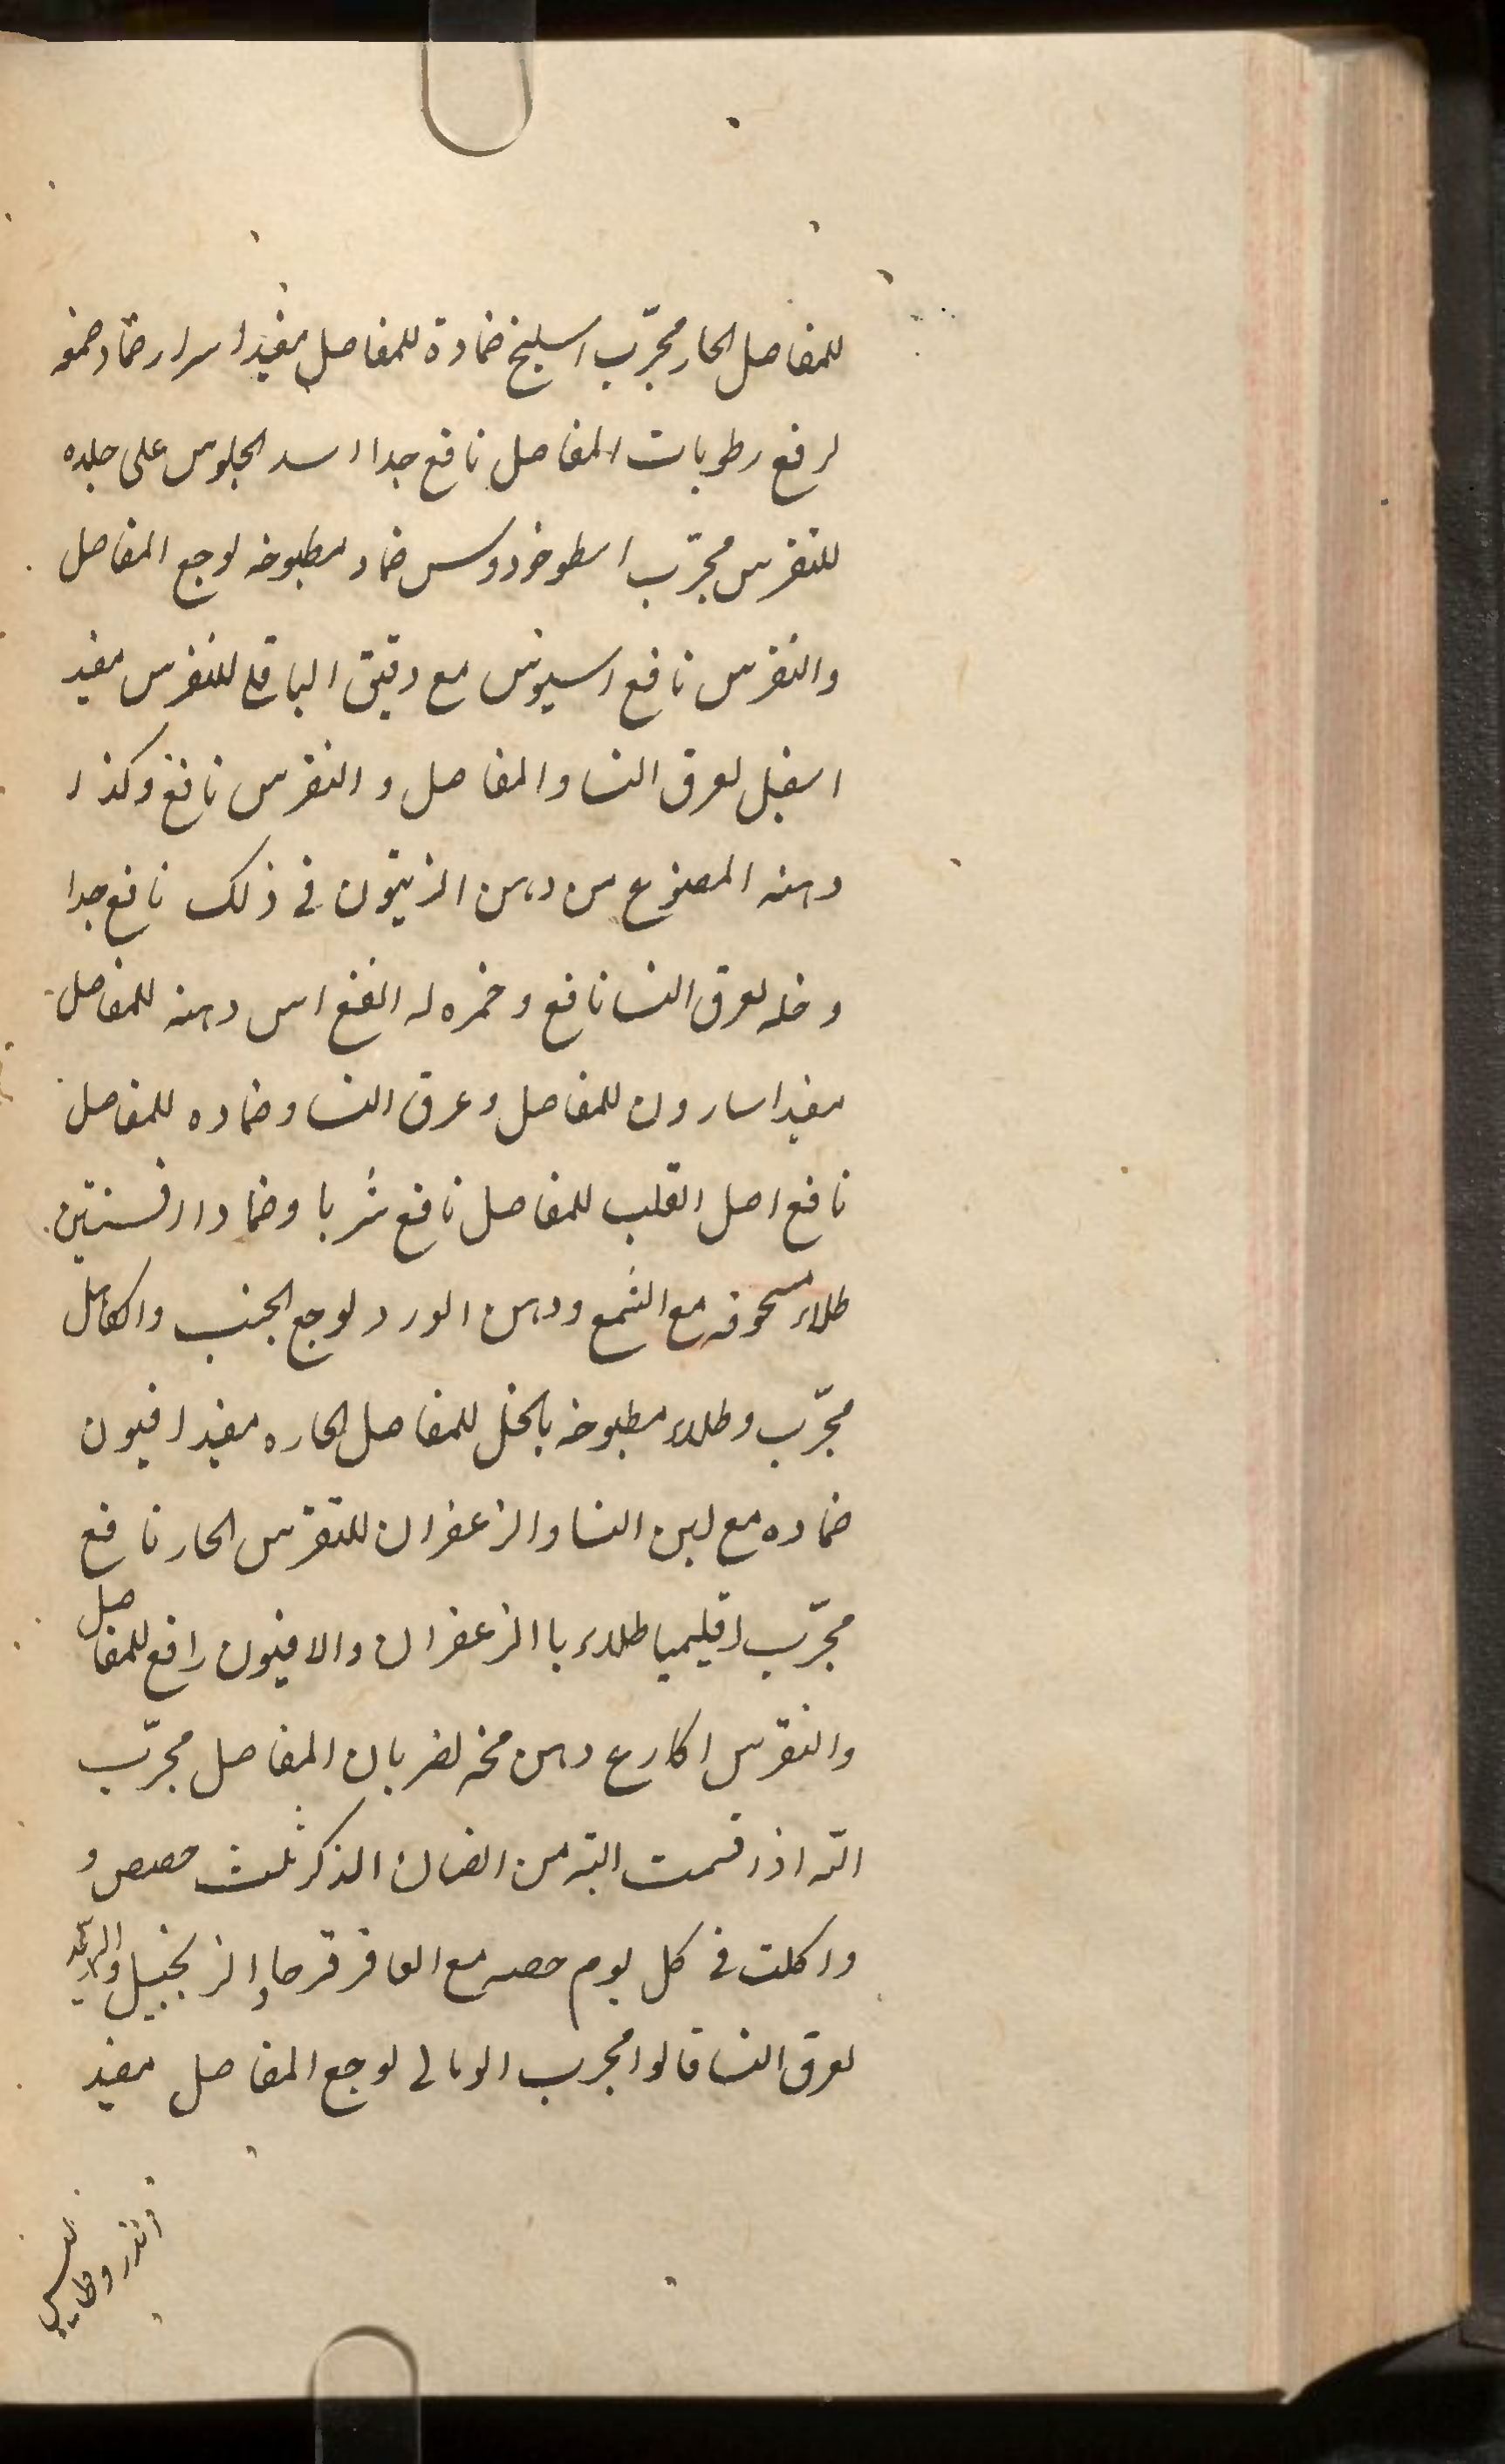 للمفاصل الحار مجرّب اسليخ ضمادة للمفاصل مفيد اسرار ضماد صمغه
لرفع رطوبات المفاصل نافع جدا اسد الجلوس على جلده
للنقرس مجرّب اسطوخودوس ضماد مطبوخه لوجع المفاصل
والنقرس نافع اسيوس مع دقيق الباقلى للنقرس مفيد
اسقيل لعرق النسا والمفاصل و النقرس نافع وكذا
دهنه المصنوع من دهن الزيتون في ذلك نافع جدا
وخله لعرق النسا نافع وخمره له انفع اس دهنه للمفاصل
مفيد اسارون للمفاصل وعرق النسا وضماده للمفاصل
نافع اصل القلب للمفاصل نافع شربا وضمادا افسنتين
طلاء مسحوقه مع الشمع ودهن الورد لوجع الجنب والكاهل
مجرّب وطلاء مطبوخه بالخل للمفاصل الحاره مفيد افيون
ضماده مع لبن النسا والزعفران للنقرس الحار نافع
مجرّب اقليميا طلاء با الزعفران والافيون رافع للمفاصل
والنقرس اكارع دهن مخه لضربان المفاصل مجرّب
اليه اذا قسمت اليه من الضان الذكر ثلث حصص و
واكلت في كل يوم حصه مع العاقرقرحا والزنجبيل
لعرق النسا قالوا مجرب الومالى لوجع المفاصل مفيد